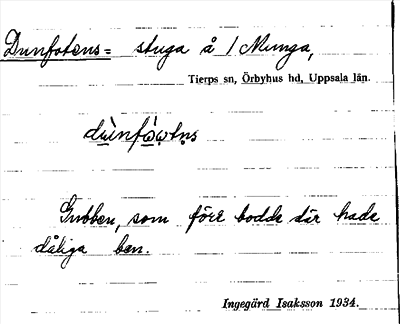 Dunfotens= stuga å / Munga,
Tierps sn, Örbyhus hd, Uppsala län.
Gubben, som förr bodde där hade
dåliga ben.
Ingegärd Isaksson 1934.